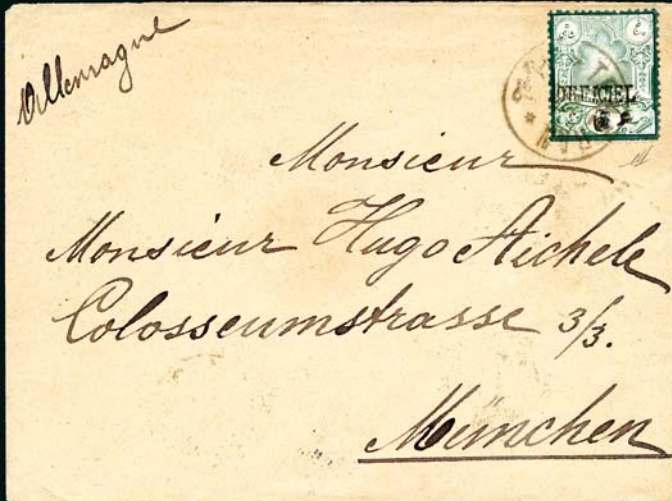 Allemagne
OFFICIEL
6
Monsieur
Monsieur Hugo Aichele
Colosseumstrasse 3/3.
München